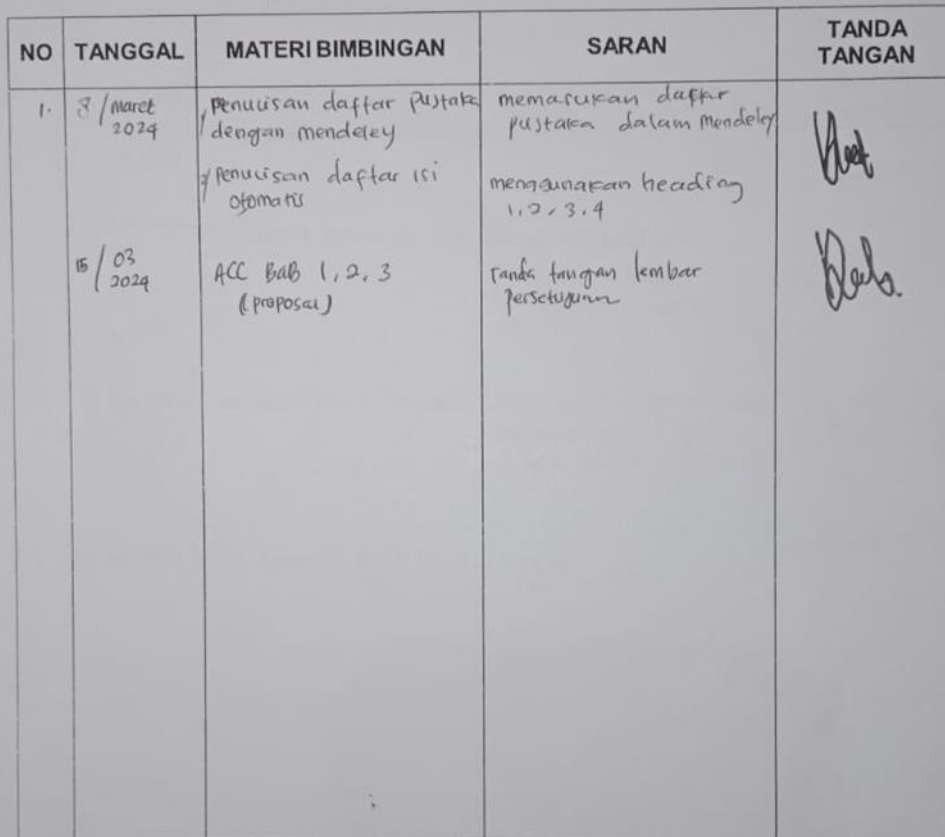 NO TANGGAL MATERI BIMBINGAN SARAN TANDA TANGAN
1. 8/maret 2024
1/ Penulisan daftar Pustaka
dengan mendeley
memasukan daftar
pustaka dalam Mendeley
2/ Penulisan daftar isi
otomatis
menggunakan heading
1, 2, 3, 4
15/03 2024
ACC BaB 1, 2, 3
(proposal)
Tanda tangan lembar
persetujuan